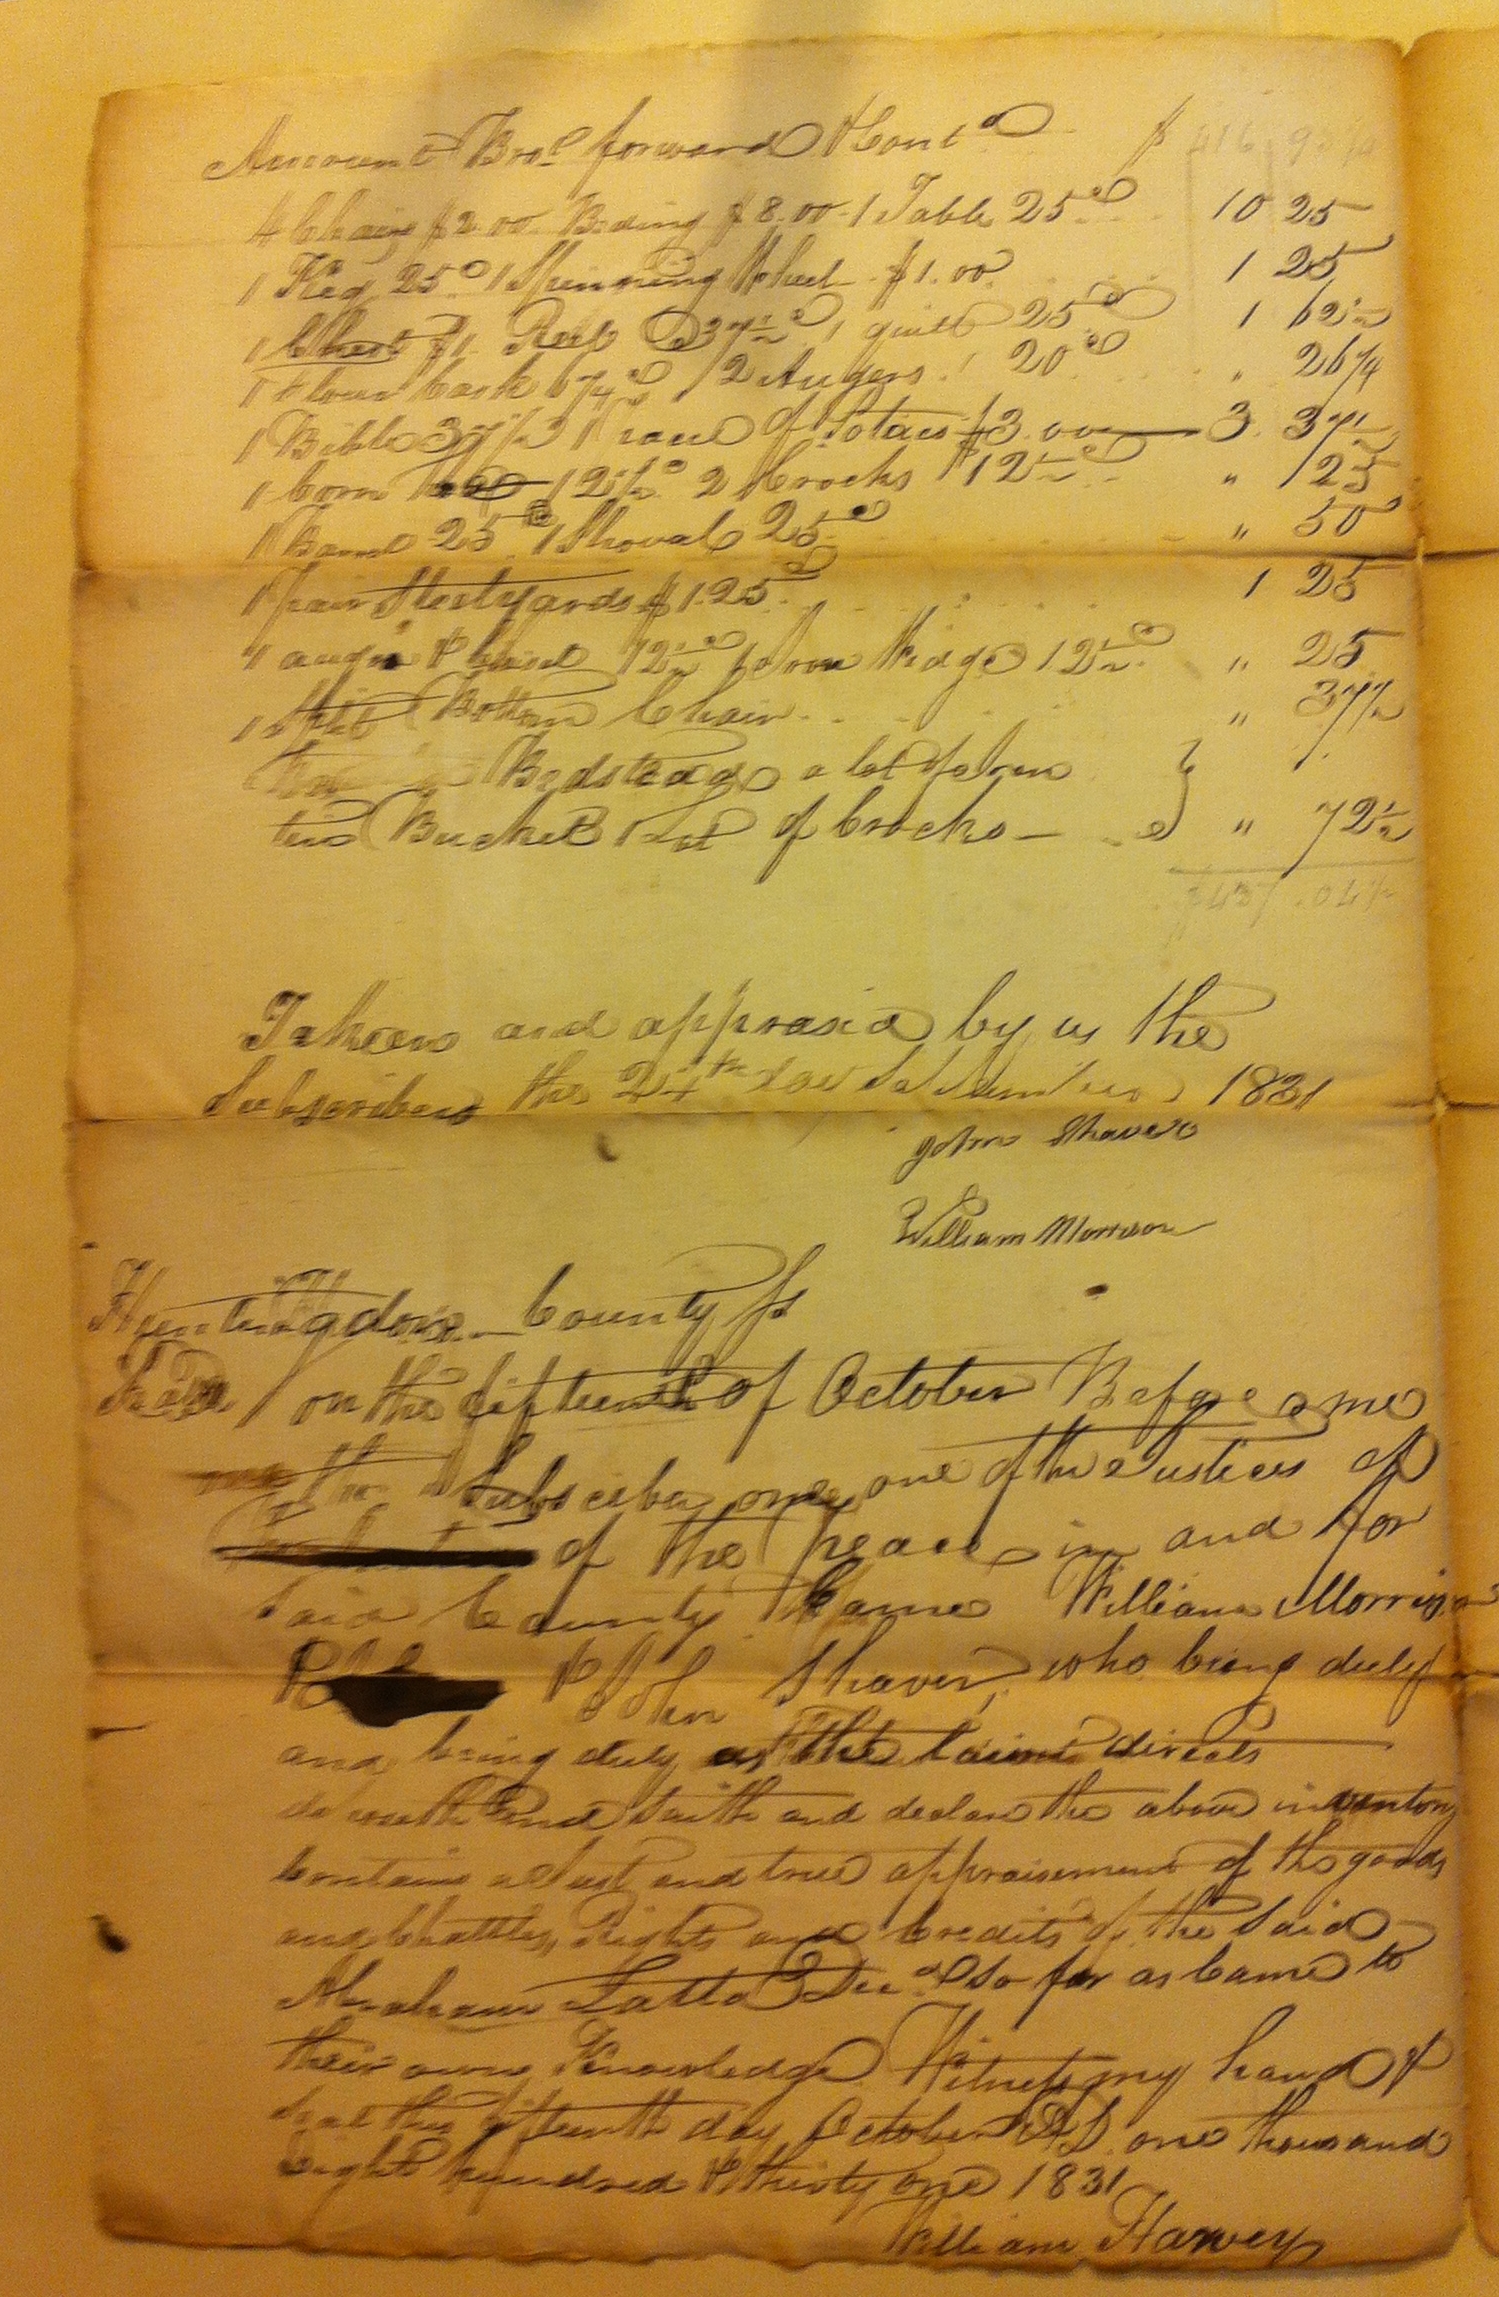 Amount Brot forward & Contd $ 416 90
4 Chairs $2.00 Beding $8.00 1 Table 25 10 25
1 Keg 25 1 Spinning Wheel $1.00 1 25
1 Chest $1 Reel 37½ 1 quilt 25 1 62½
1 flour Cask 6¼ 2 Augers 20 " 26¼
1 Bible 37½ 1 of Potaes $3.00 3 37½
1 Corn 12½ 2 Crocks 12½ " 25
1 Barrel 25 1 Shoval 25 " 50
1 pair Steelyards $1.25 1 25
1 auger & Chisel 12½ 1 Iron Wedge 12½ " 25
1 Split Bottom Chair " 37½
Bedstead a lot of
tin Bucket 1 lot of Crocks " 72½
$437.04
Taken and apprasid by us the
Subscribers the 24th day September 1831
John Shaver
William Morrison
Huntingdon County Ss
on the fifteenth of October Before me
the Subscriber one of the Justices of
of the peace in and for
Said County Came William Morrison
& John Shaver, who being duly
and being duly as the directs
do and Saith and declare the above inventory
Contains a Just and true appraisement of the goods
and Chattles, Rights and Credits of the Said
Abraham Latta Decd So far as Came to
their own Knowledge Witness my hand &
Seal this fifteenth day October AD one thousand
Eight hundred & thirty one 1831
William Harvey